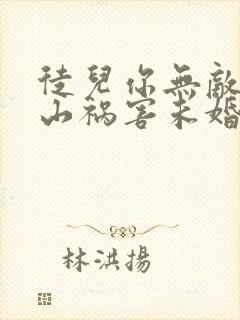 徒兒你無敵
山禍害未婚
林洪揚